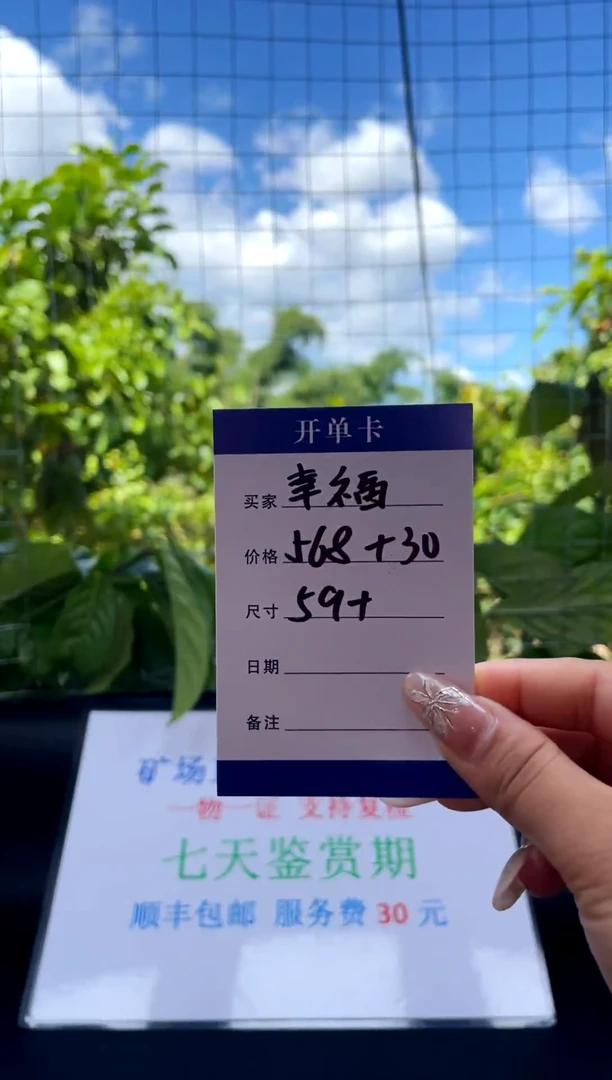 开单卡
买家 幸福
价格 568+30
尺寸 59+
日期
备注
矿场
一物一证 支持复检
七天鉴赏期
顺丰包邮 服务费 30 元